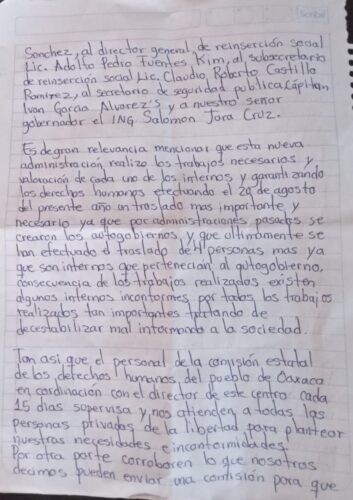 Sanchez, al director general de reinserción social
Lic. Adolto Pedro Fuentes Kim, al subsecretario
de reinserción social Lic. Claudio Roberto Castillo
Ramirez, al secretario de seguridad publica Capitan
Ivan Garcia Alvarez's y a nuestro señor
gobernador el ING Salomon Jora Cruz.
Es de gran relevancia mencionar que esta nueva
administración realizo los trabajos necesarios y
valoración de cada uno de los internos y garantizando
los derechos humanos efectuando el 29 de agosto
del presente año un traslado mas importante y
necesario ya que por administraciones pasadas se
crearon los autogobiernos, y que ultimamente se
han efectuado el traslado de 4 personas mas ya
que son internos que pertenecian al autogobierno,
consecuencia de los trabajos realizados existen
algunos internos inconformes por todos los trabajos
realizados tan importantes tratando de
decestabilizar mal informando a la sociedad.
Tan asi que el personal de la comisión estatal
de los derechos humanos del pueblo de Oaxaca
en cordinación con el director de este centro cada
15 dias supervisa y nos atienden a todas las
personas privadas de la libertad para plantear
nuestras necesidades e inconformidades.
Por otra parte corroboren lo que nosotros
decimos pueden enviar una comisión para que